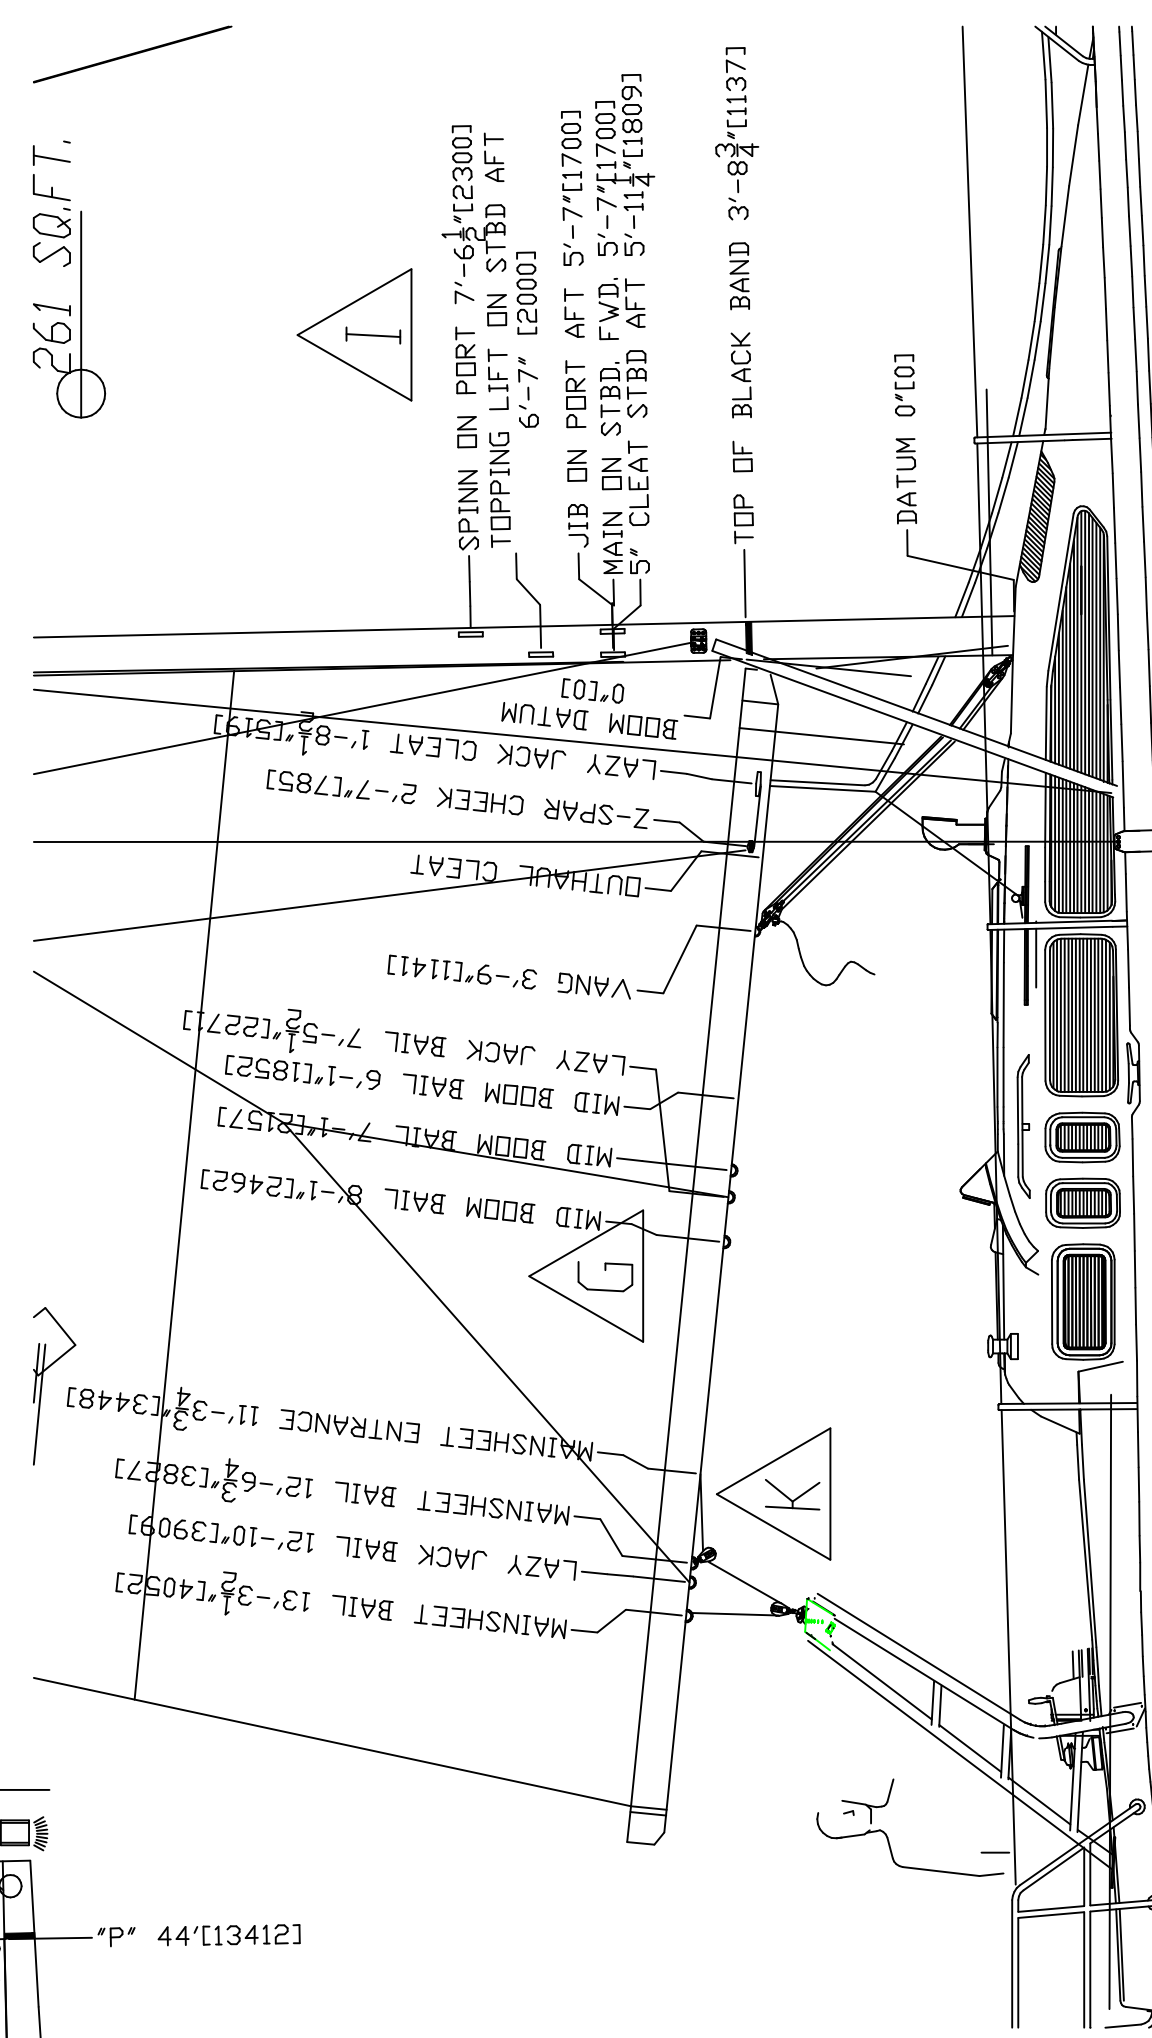 261 SQ.FT.
I
SPINN ON PORT 7'-6 1/2"[2300]
TOPPING LIFT ON STBD AFT
6'-7" [2000]
JIB ON PORT AFT 5'-7"[1700]
MAIN ON STBD. FWD. 5'-7"[1700]
5" CLEAT STBD AFT 5'-11 1/4"[1809]
TOP OF BLACK BAND 3'-8 3/4"[1137]
DATUM 0"[0]
BOOM DATUM
0"[0]
LAZY JACK CLEAT 1'-8 1/2"[519]
Z-SPAR CHEEK 2'-7"[785]
OUTHAUL CLEAT
VANG 3'-9"[1141]
LAZY JACK BAIL 7'-5 1/2"[2271]
MID BOOM BAIL 6'-1"[1852]
MID BOOM BAIL 7'-1"[2157]
MID BOOM BAIL 8'-1"[2462]
G
MAINSHEET ENTRANCE 11'-3 3/4"[3448]
MAINSHEET BAIL 12'-6 3/4"[3827]
LAZY JACK BAIL 12'-10"[3909]
MAINSHEET BAIL 13'-3 1/2"[4052]
K
"P" 44'[13412]